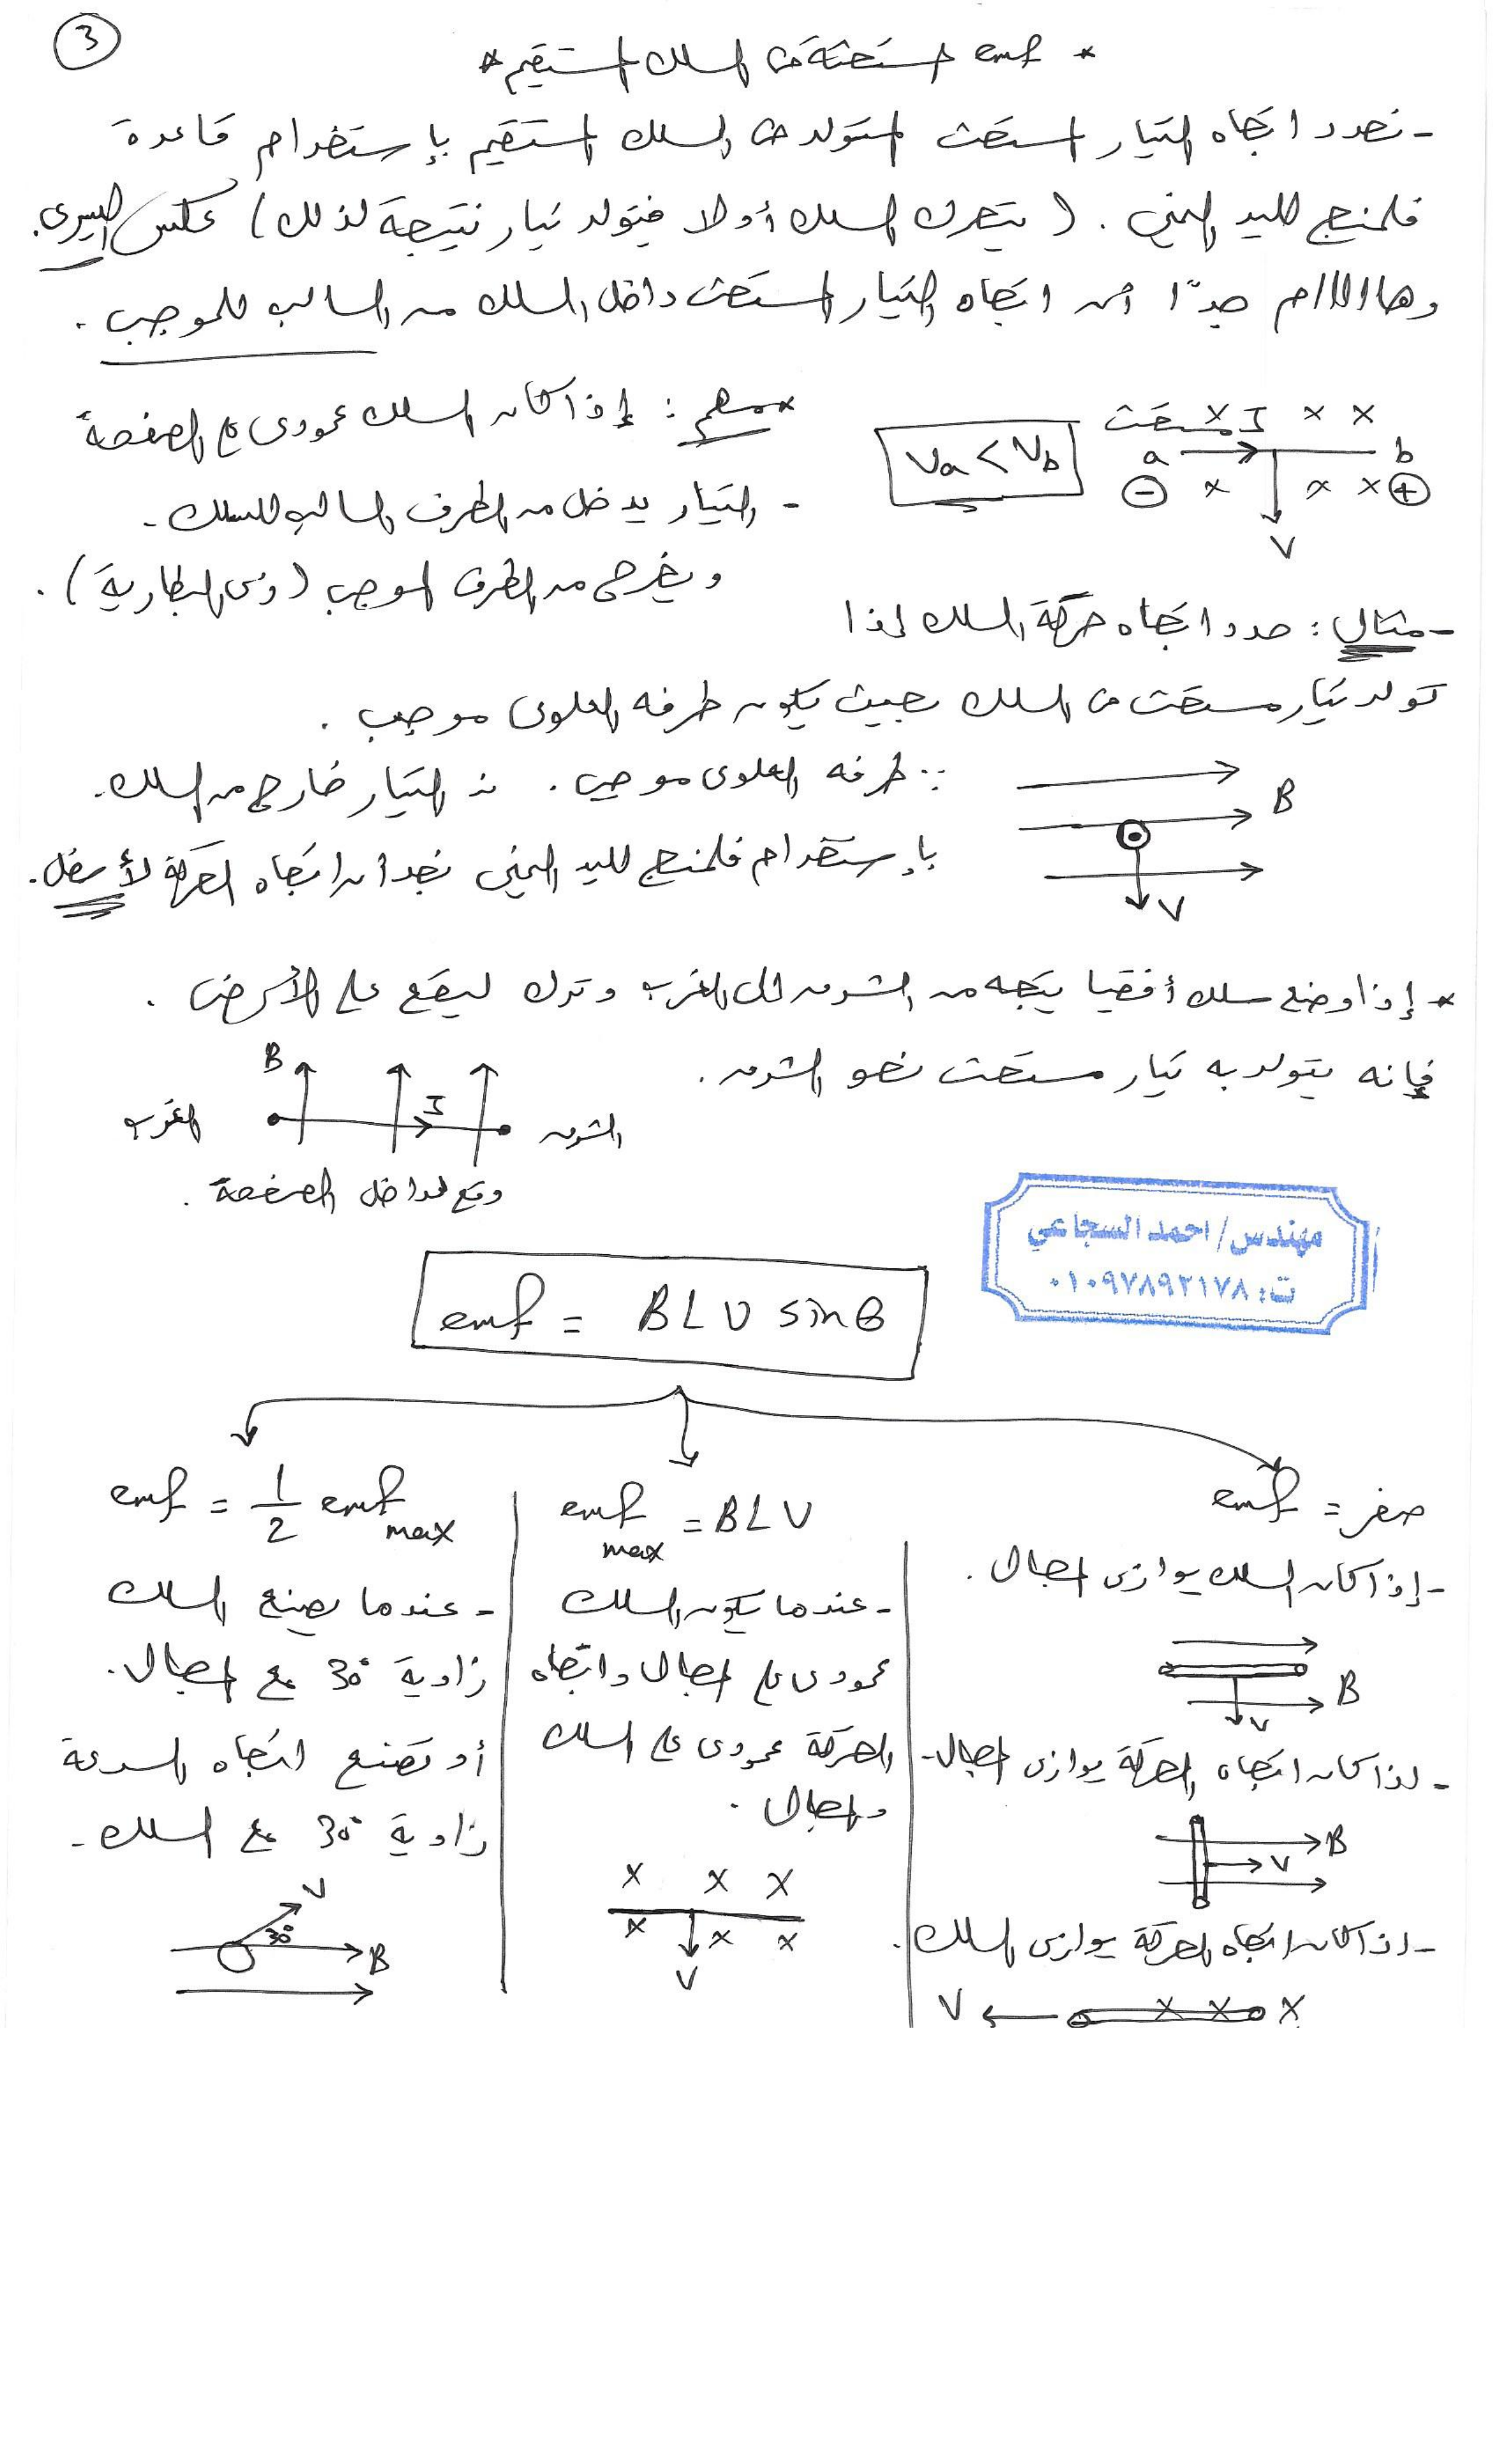 3
* emf المستحثة في السلك المستقيم *
- نحدد اتجاه التيار المستحث المتولد في السلك المستقيم بإستخدام قاعدة
فلمنج لليد اليمنى . ( يتحرك السلك أولا فيتولد تيار نتيجة لذلك ) عكس اليسرى .
وهااااام جدًا أن اتجاه التيار المستحث داخل السلك من السالب للموجب .
مستحث I x x x
a b
- x x x +
V
Va < Vb
* مهم : إذا كان السلك عمودى على الصفحة
- التيار يدخل من الطرف السالب للسلك -
ويخرج من الطرف الموجب ( زى البطارية ) .
- مثال : حدد اتجاه حركة السلك إذا
تولد تيار مستحث في السلك بحيث يكون طرفه العلوى موجب .
∵ طرفه العلوى موجب . ∴ التيار خارج من السلك .
بإستخدام فلمنج لليد اليمنى نجد أن اتجاه الحركة لأسفل .
B
V
* إذا وضع سلك أفقيا يتجه من الشرق إلى الغرب وترك ليقع على الأرض .
فإنه يتولد به تيار مستحث نحو الشرق .
B
I
الشرق
الغرب
وقع لداخل الصفحة .
مهندس/ احمد السجاعي
ت: ٠١٠٩٧٨٩٢١٧٨
emf = BLV sinθ
emf = صفر
- إذا كان السلك يوازى المجال .
B
V
- إذا كان اتجاه الحركة يوازى المجال -
B
V
- اذا كان اتجاه الحركة يوازى السلك .
V x x x
emf max = BLV
- عندما يكون السلك
عمودى على المجال واتجاه
الحركة عمودى على السلك
والمجال .
x x x
x x x
V
emf = 1/2 emf max
- عندما يصنع السلك
زاوية 30° مع المجال .
أو تصنع اتجاه السرعة
زاوية 30° مع السلك -
V
30°
B